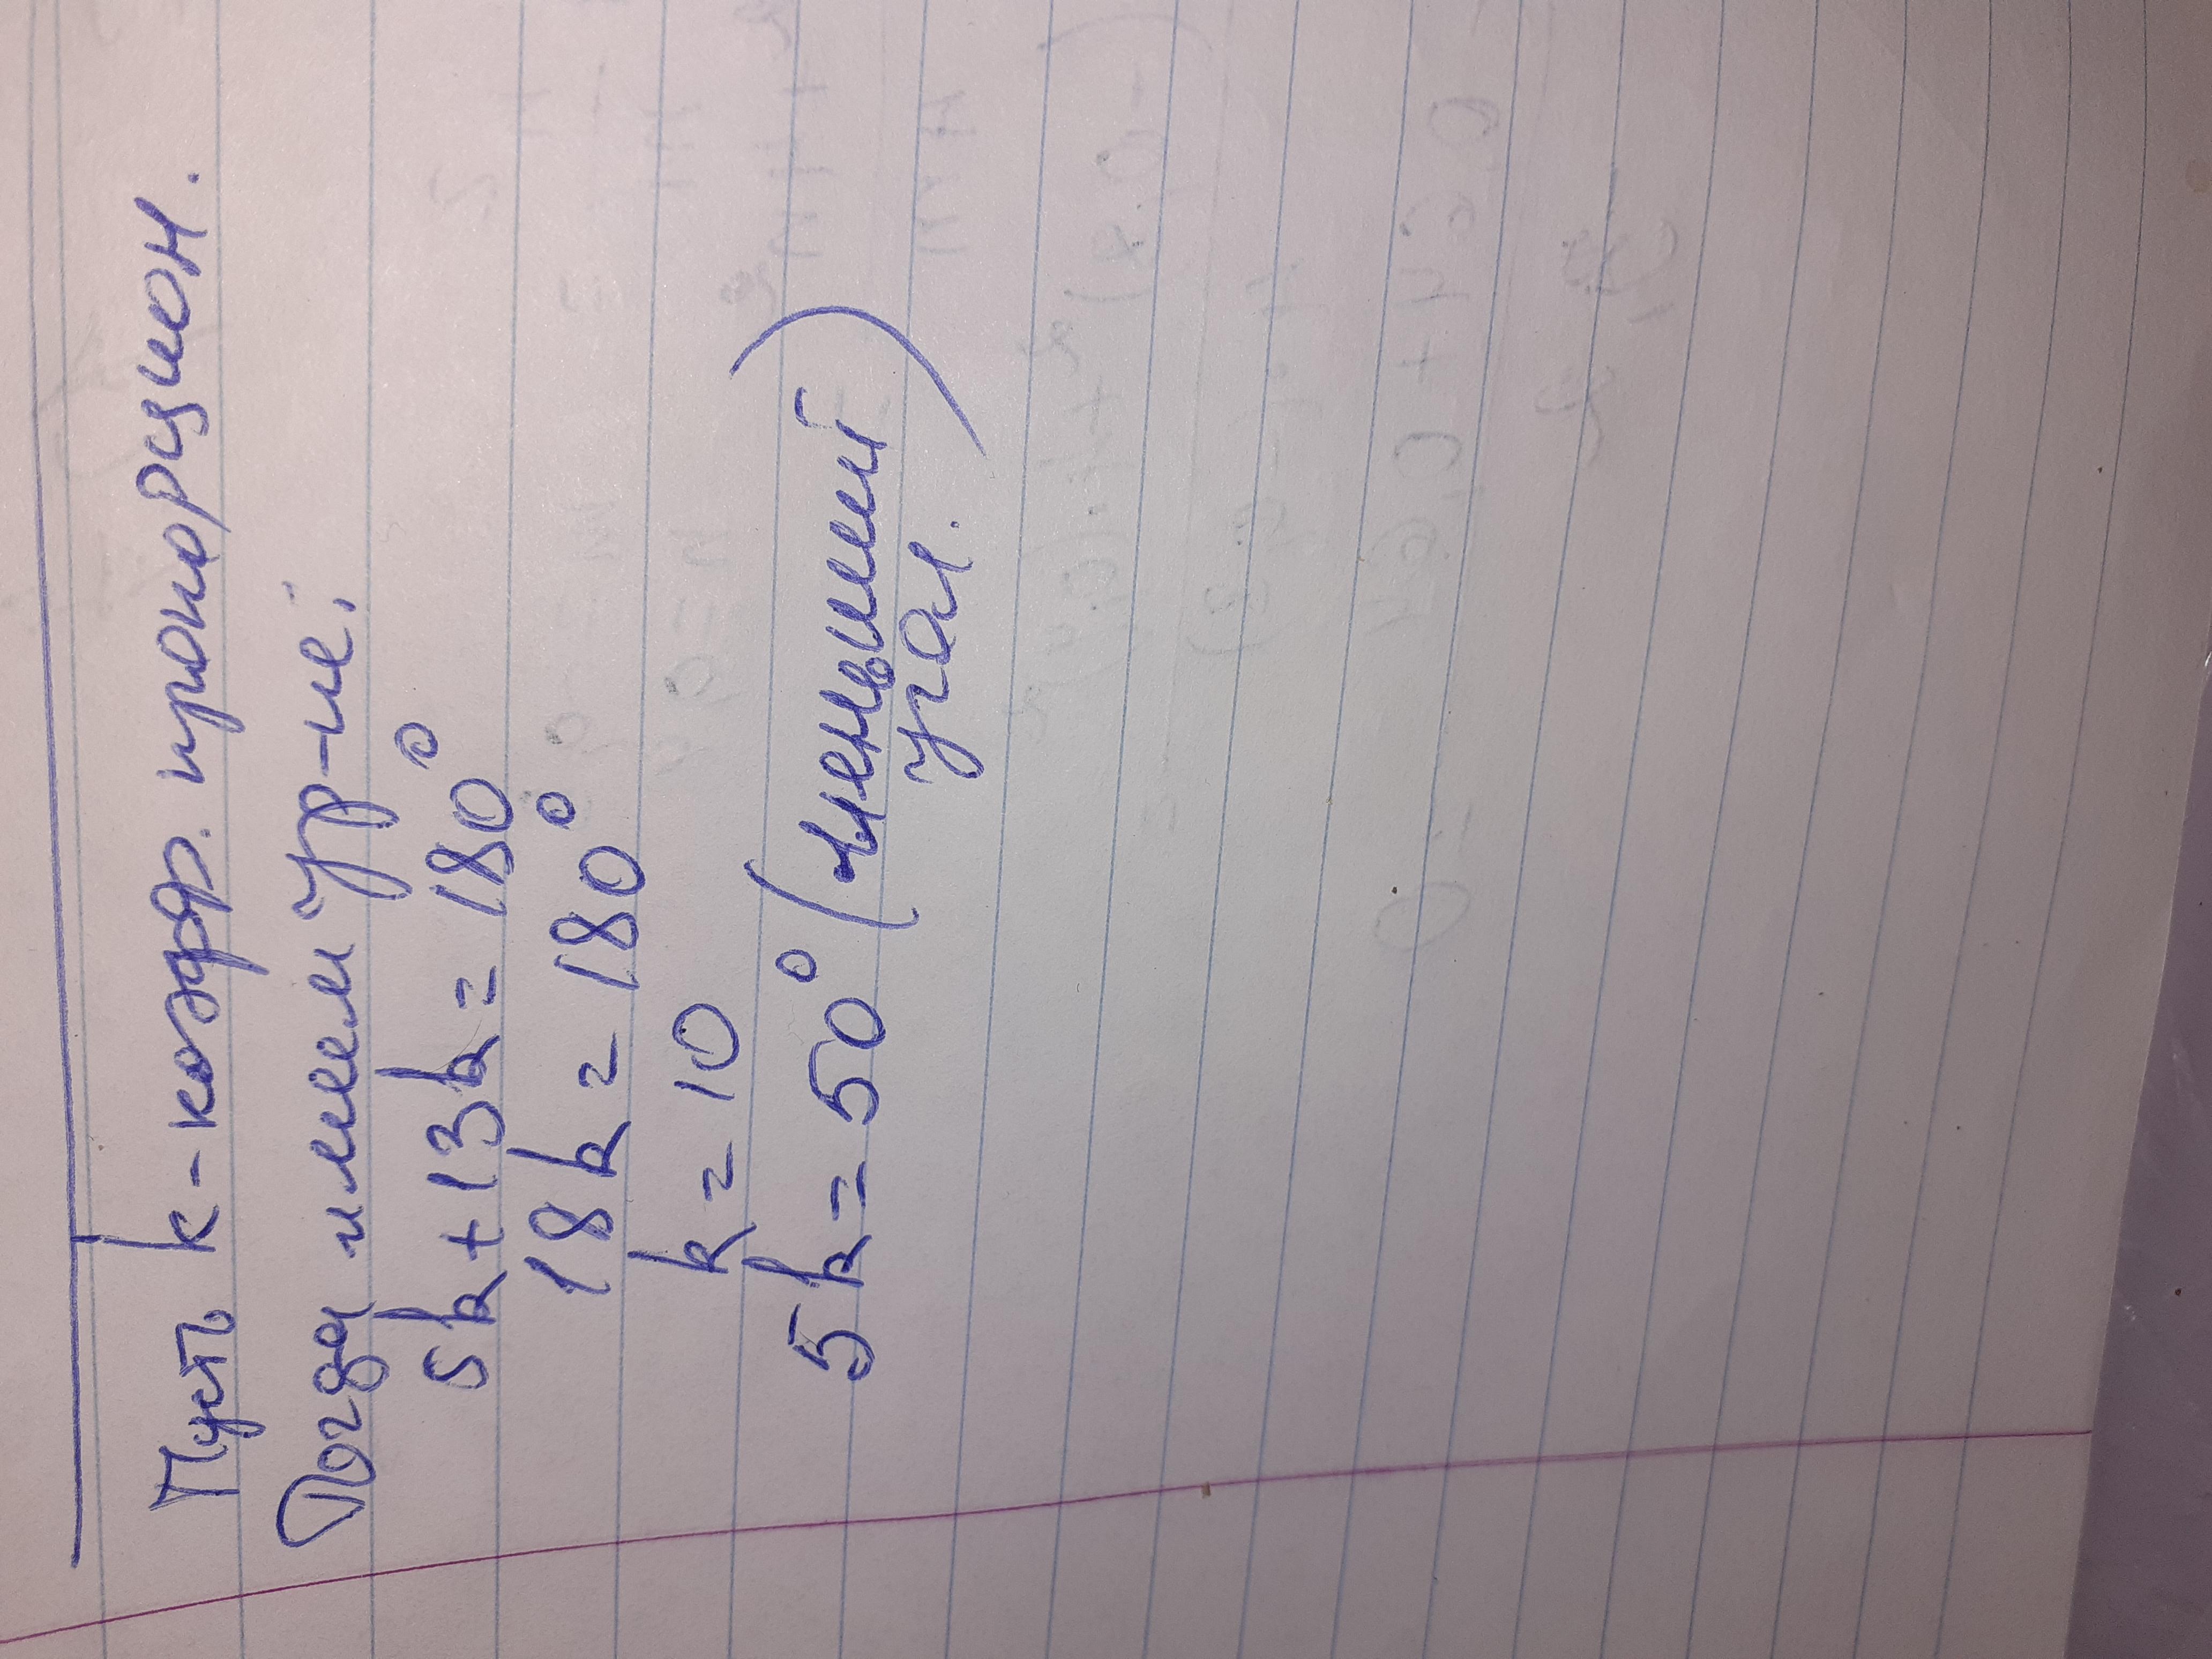 Пусть k - коэфф. пропорцион.
Тогда имеем ур-ие:
5k + 13k = 180°
18k = 180°
k = 10
5k = 50° (меньший
угол.)